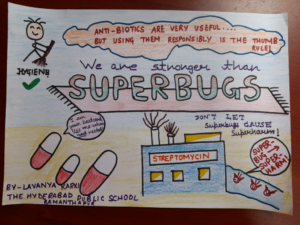 ANTI-BIOTICS ARE VERY USEFUL....
BUT USING THEM RESPONSIBLY IS THE THUMB
RULE!
HYGIENE
We are stronger than
SUPERBUGS
I am
not
Use me when
DON'T LET
Superbugs CAUSE
Superharm!
STREPTOMYCIN
SUPER-
BUG →
SUPER-
HARM!
BY-LAVANYA KARKI
THE HYDERABAD PUBLIC SCHOOL
RAMANTHAPUR